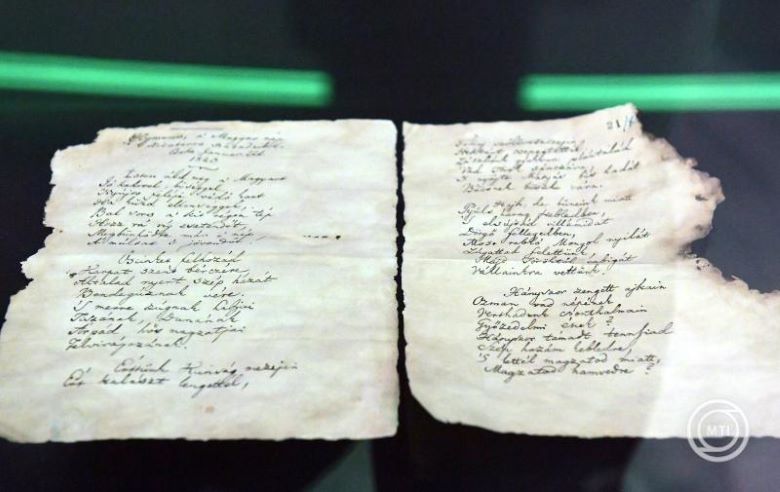 Hymnus, a' Magyar nép
Zivataros századaiból
Cseke Januar 22d
1823
Isten áldd meg a' Magyart
Jó kedvvel, bőséggel,
Nyújts feléje védő kart
Ha küzd ellenséggel;
Bal sors a' kit régen tép
Hozz rá víg esztendőt,
Megbűnhődte már e' nép
A' multat 's jövendőt
felhozád
Kárpát szent bérczére,
Általad nyert szép hazát
Bendegúznak vére,
'S merre zúgnak habjai
Tiszának, Dunának,
Árpád' hős magzatjai
Felvirágozának.
Kunság mezején
Ért kalászt lengettél,
21/
szőlővesszején
Nektárt csepegtettél
Zászlónk gyakran plántálád
Vad török sánczára,
'S nyögte Mátyás bús hadát
Bécsnek büszke vára.
Hajh, de bűneink miatt
Gyúlt harag kebledben,
'S elsújtád villámidat
Dörgő fellegedben,
Most rabló Mongol nyilát
Zúgattad felettünk,
Majd töröktől rabigát
Vállainkra vettünk.
Hányszor zengett ajkain
Ozman vad népének
Vert hadunk csonthalmain
Győzedelmi ének?
Hányszor támadt tenfiad
Szép hazám kebledre
'S lettél magzatod miatt,
Magzatod hamvvedre?
MTI